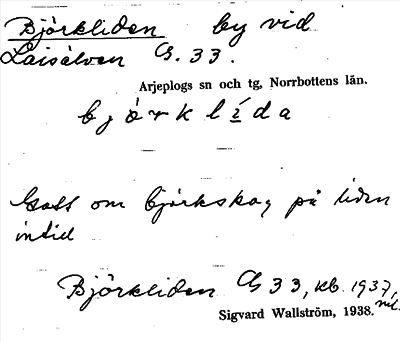 Björkliden by vid
Laisälven G. 33.
Arjeplogs sn och tg, Norrbottens län.
björklída
Gott om björkskog på liden
intill
Björkliden G 33, kb. 1937,
Sigvard Wallström, 1938.